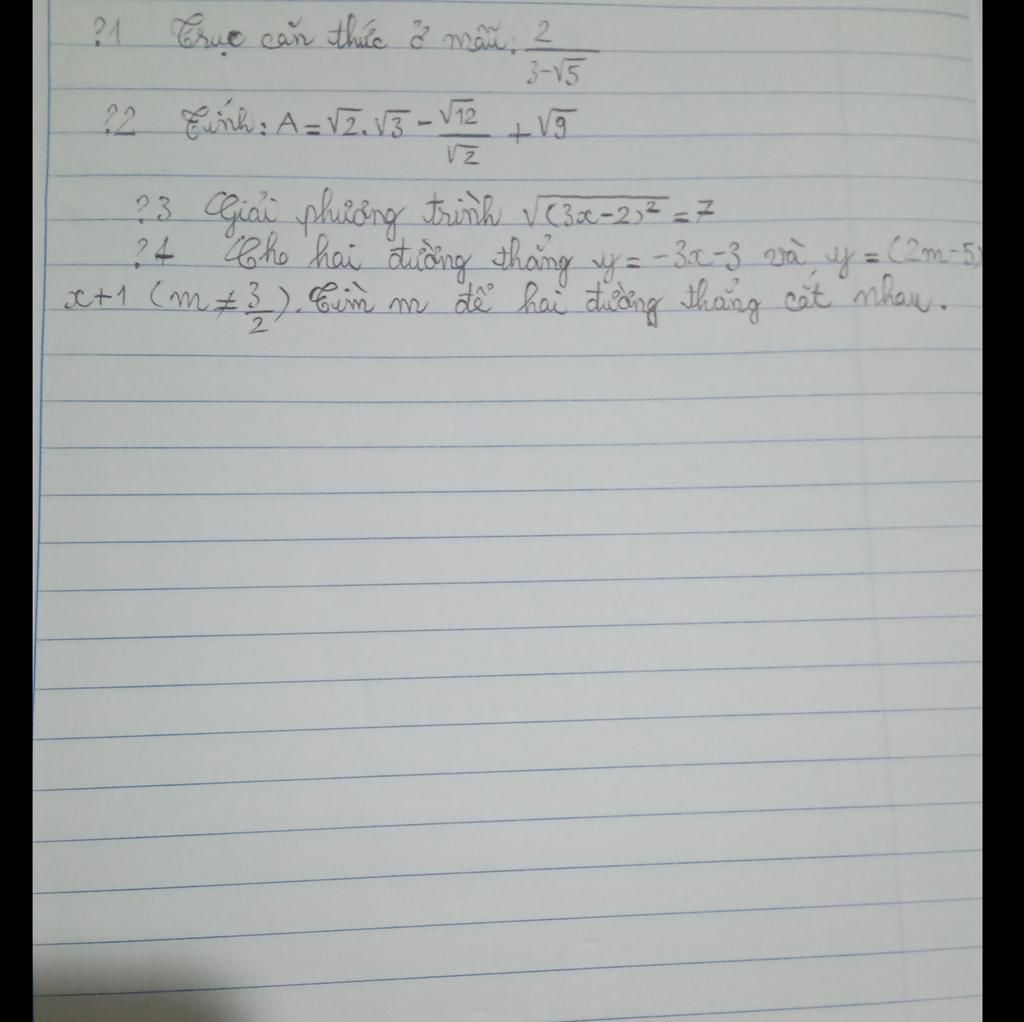 ?1 Trục căn thức ở mẫu: 2/(3-√5)
?2 Tính: A = √2.√3 - √12/√2 + √9
?3 Giải phương trình √(3x-2)² = 7
?4 Cho hai đường thẳng y = -3x-3 và y = (2m-5)
x+1 (m ≠ 3/2). Tìm m để hai đường thẳng cắt nhau.